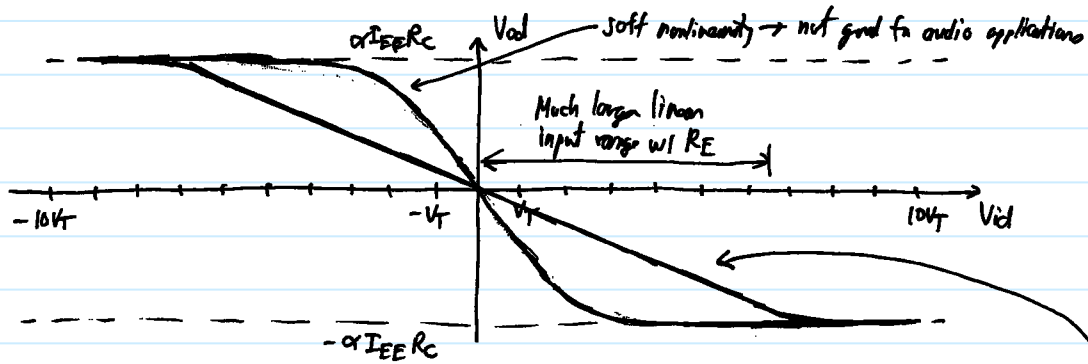 αI_EE R_C
V_od
soft nonlinearity → not good for audio applications
Much larger linear
input range w/ R_E
-10V_T
-V_T
V_T
10V_T
V_id
-αI_EE R_C